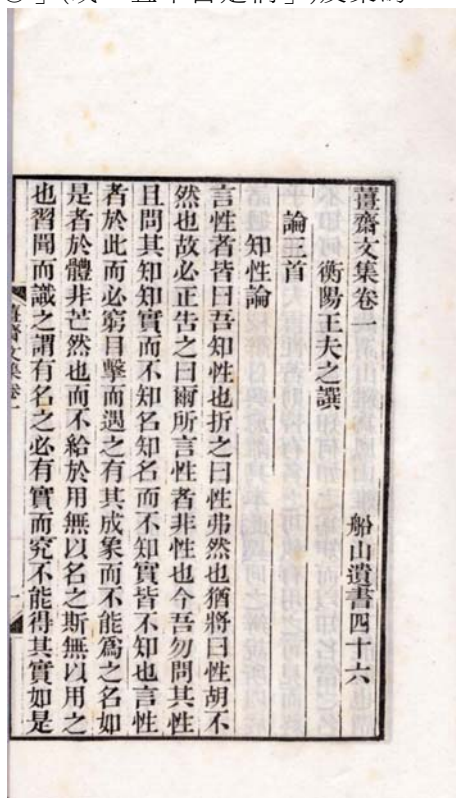 薑齋文集卷一 船山遺書四十六
衡陽王夫之譔
論三首
知性論
言性者皆曰吾知性也折之曰性弗然也猶將曰性胡不
然也故必正告之曰爾所言性者非性也今吾勿問其性
且問其知知實而不知名知名而不知實皆不知也言性
者於此而必窮目擊而遇之有其成象而不能爲之名如
是者於體非芒然也而不給於用無以名之斯無以用之
也習聞而識之謂有名之必有實而究不能得其實如是